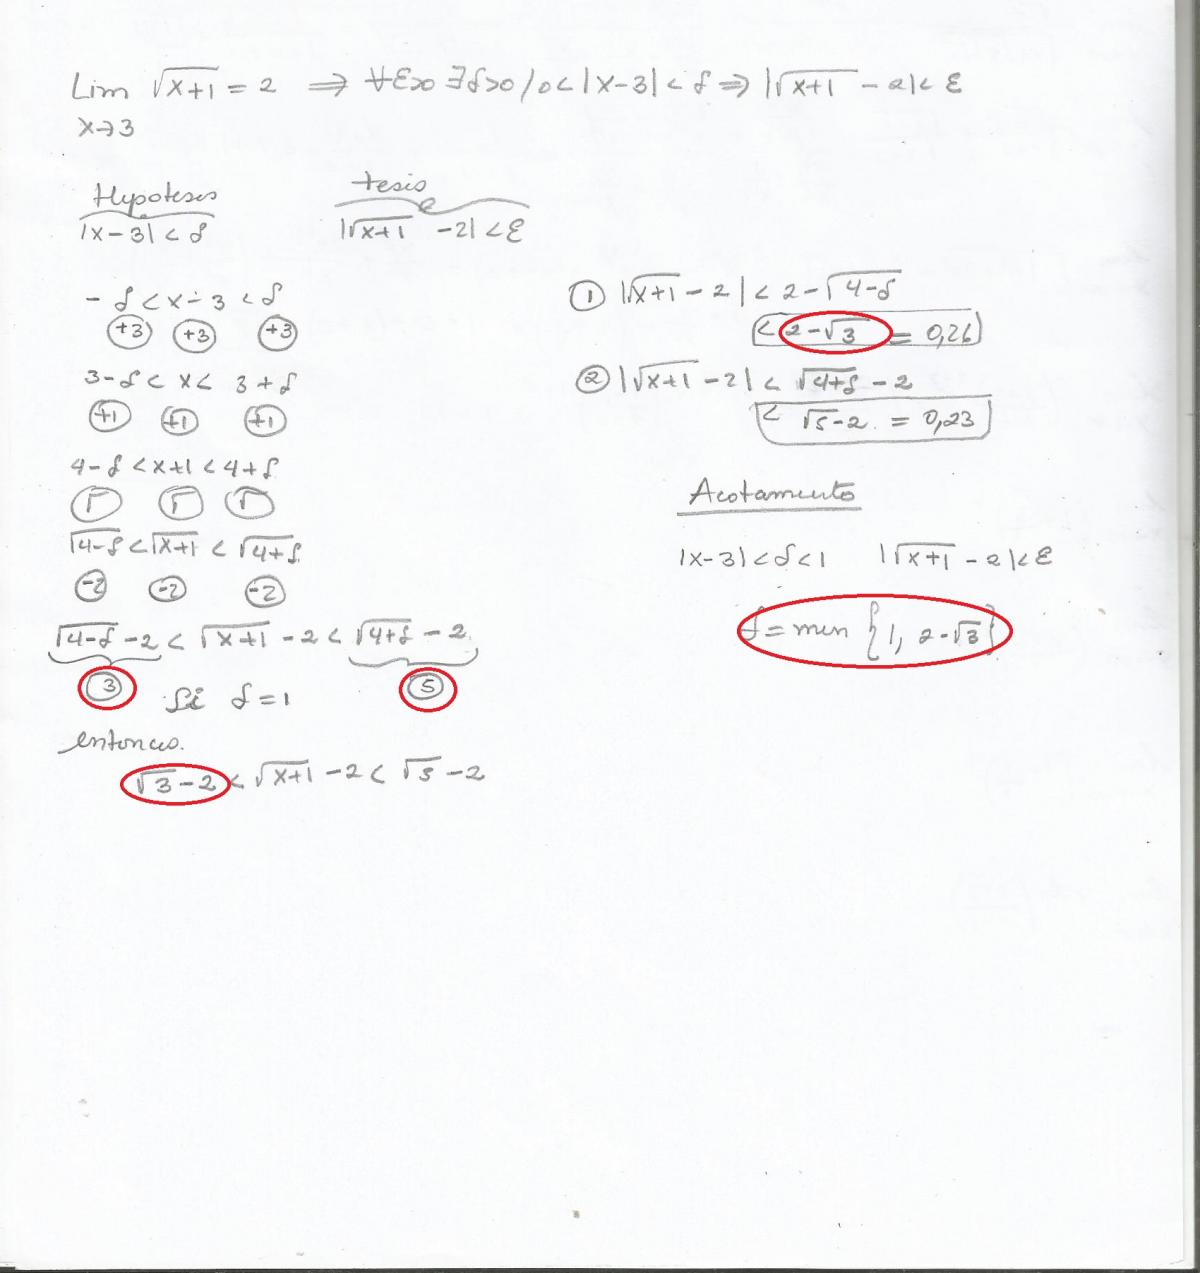 Lim √x+1 = 2 ⇒ ∀ε>0 ∃δ>0 / 0<|x-3|<δ ⇒ |√x+1 - 2|<ε
x→3
Hypotesis
|x-3|<δ
tesis
|√x+1 -2|<ε
-δ<x-3<δ
+3 +3 +3
3-δ<x<3+δ
+1 +1 +1
4-δ<x+1<4+δ
√ √ √
√4-δ<√x+1<√4+δ
-2 -2 -2
√4-δ -2<√x+1 -2<√4+δ -2
3 Si δ=1 5
entonces.
√3-2<√x+1 -2<√5-2
1 |√x+1 -2|<2-√4-δ
<2-√3 = 0,26
2 |√x+1 -2|<√4+δ -2
<√5-2 = 0,23
Acotamento
|x-3|<δ<1 |√x+1 -2|<ε
δ=min {1, 2-√3}